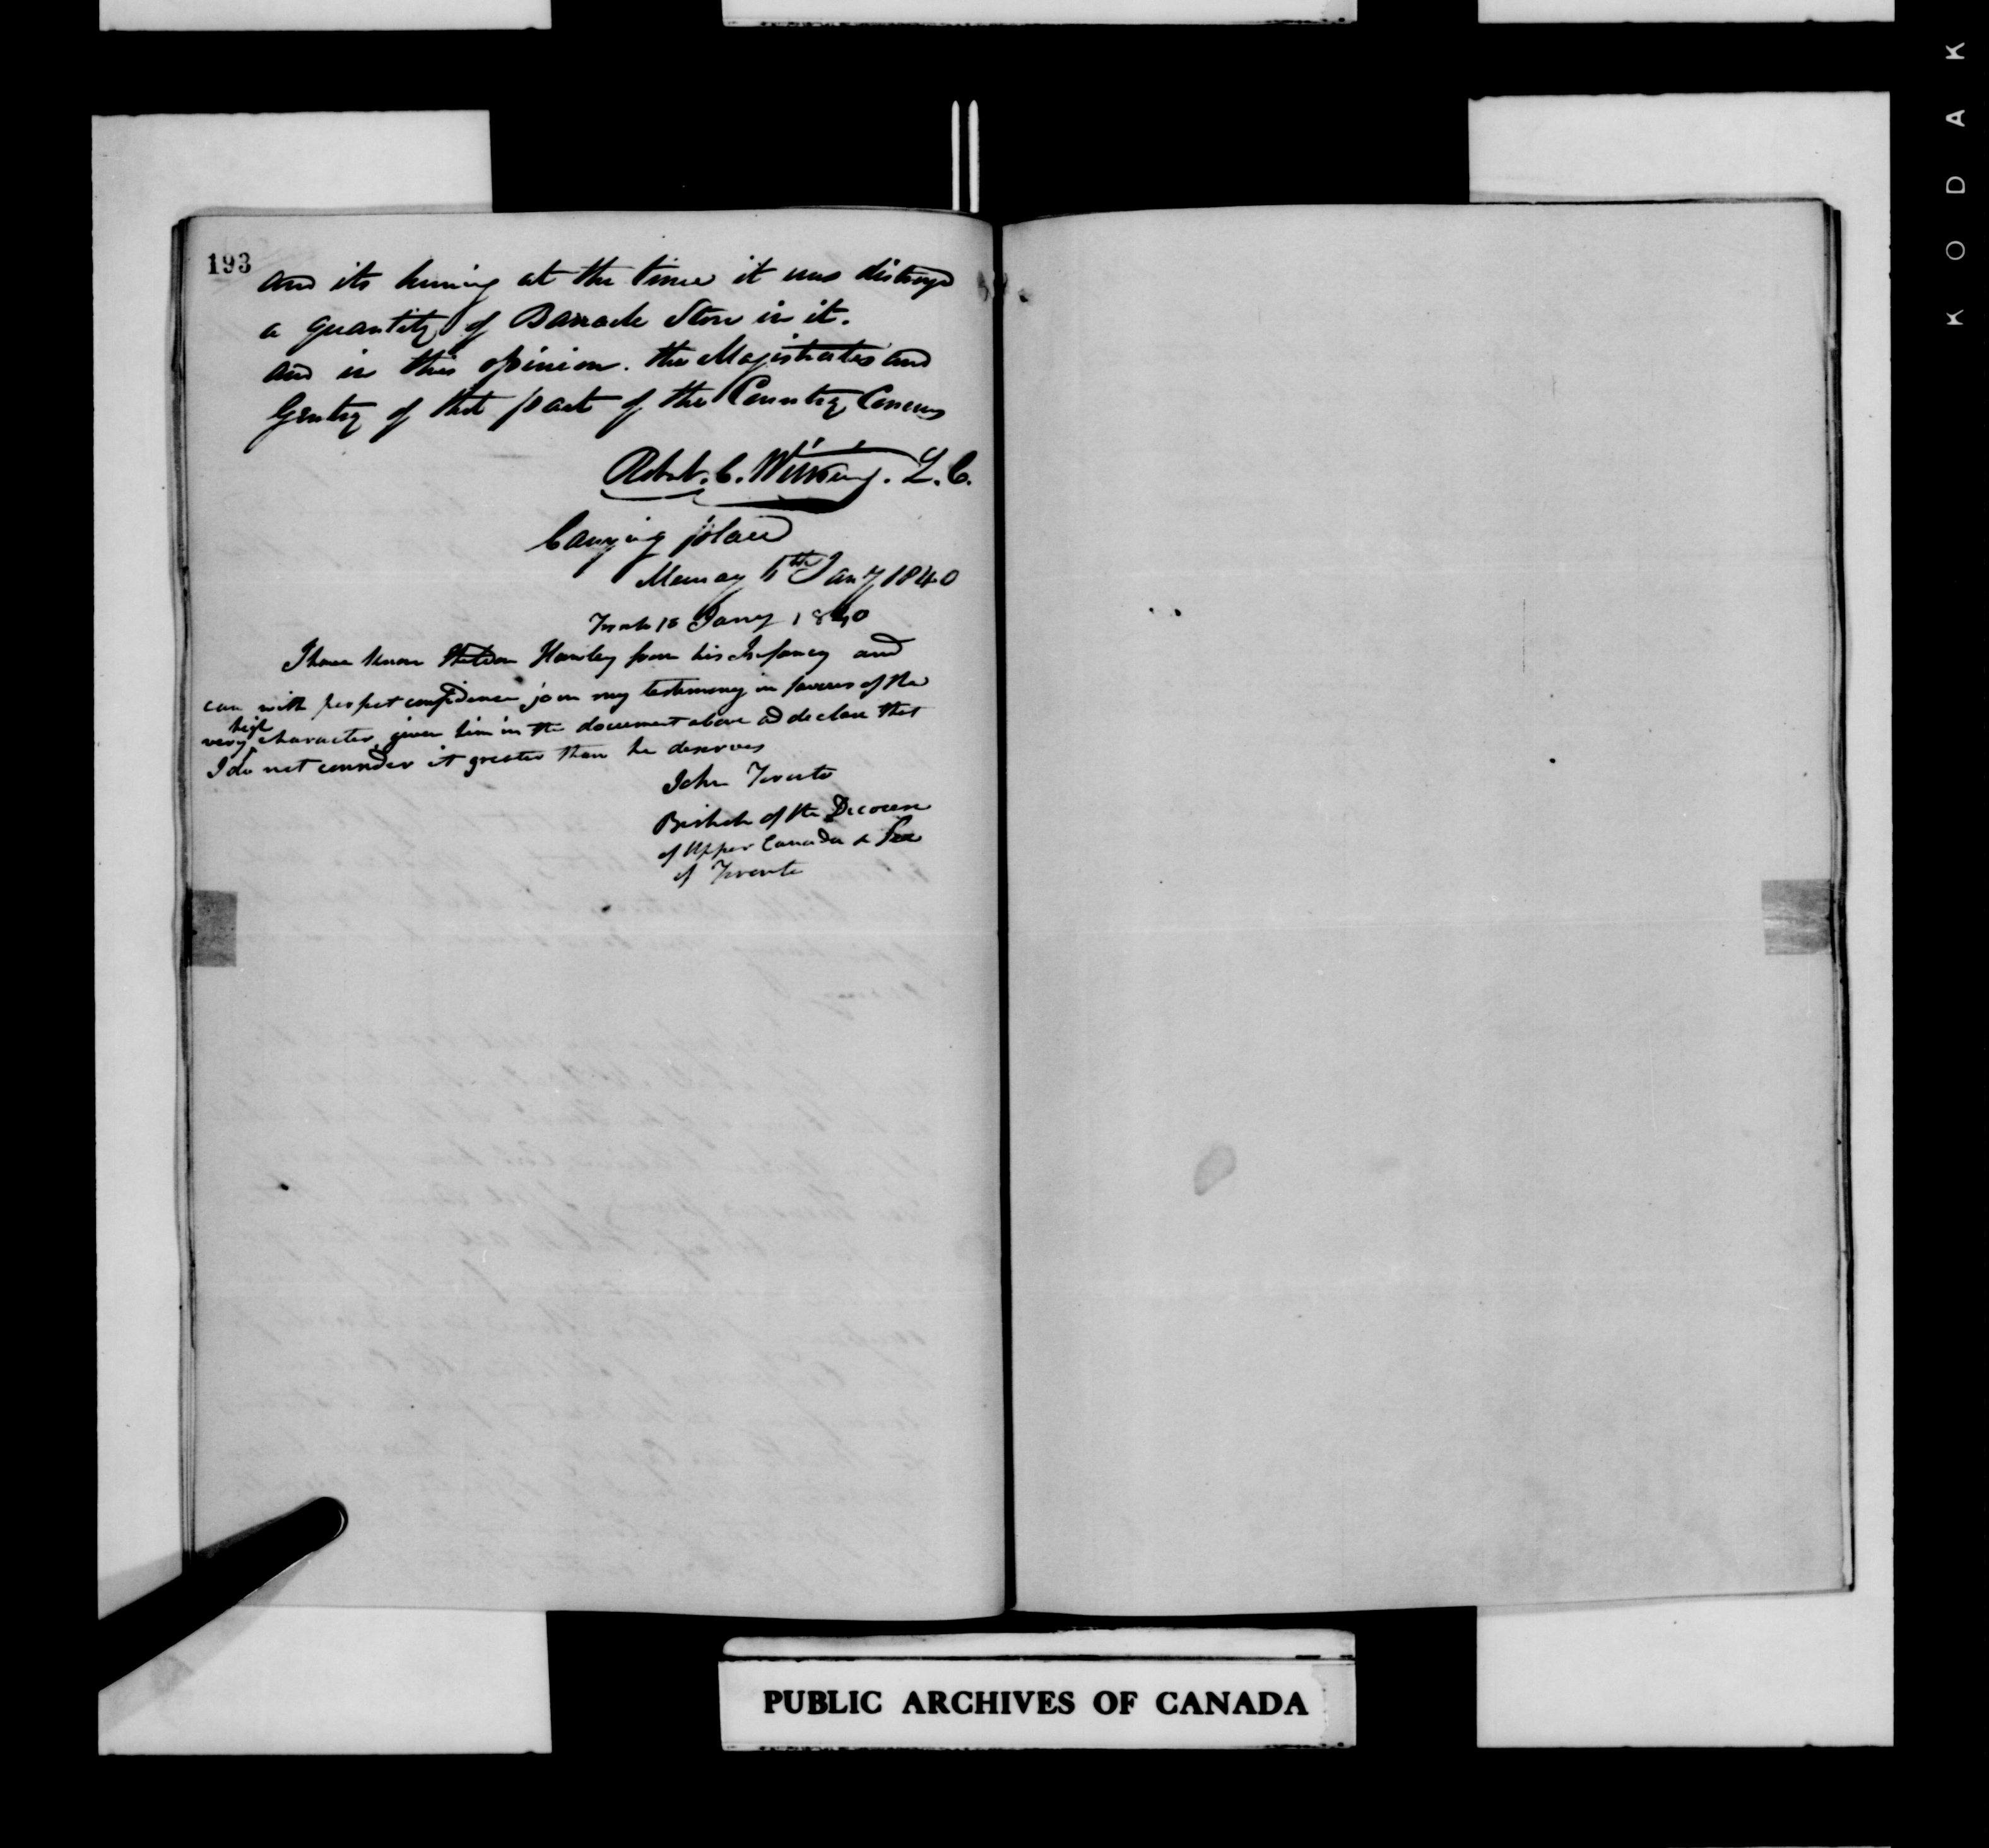 193
and its having at the time it was distroyd
a quantity of Barrack Store in it.
and in this opinion. the Magistrates and
Gentry of that part of the Country Concur
Robt. C. Wilkins. L. C.
Carrying place
Murray 6th Jany 1840
Toronto 18 Jany 1840
I have known Sheldon Hawley from his Infancy and
can with perfect confidence join my testimony in favour of the
very high character given him in the document above and declare that
I do not consider it greater than he deserves
John Toronto
Bishop of the Diocese
of Upper Canada & See
of Toronto
PUBLIC ARCHIVES OF CANADA
KODAK